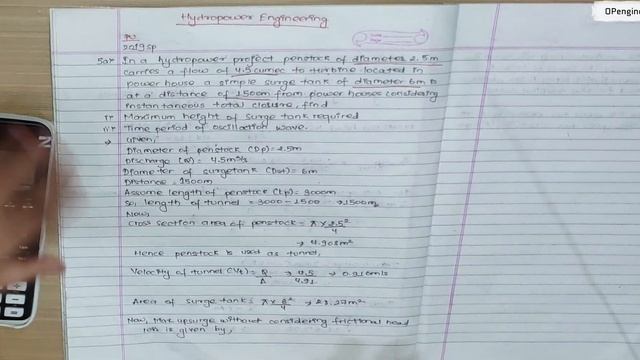 Hydropower Engineering
OPengine
PU
2019 sp
5a) In a hydropower project penstock of diameter 2.5m
carries a flow of 4.5 cumec to turbine located in
power house a simple surge tank of diameter 6m is
at a distance of 1500m from power houses considering
instantaneous total closure, find
i) Maximum height of surge tank required
ii) Time period of oscillation wave.
→ Given,
Diameter of penstock (Dp) = 2.5m
Discharge (Q) = 4.5m³/s
Diameter of surgetank (Dst) = 6m
Distance = 1500m
Assume length of penstock (Lp) = 3000m
So, length of tunnel = 3000 - 1500 → 1500m
Now,
Cross section area of penstock = π × 2.5²/4
→ 4.908m²
Hence penstock is used as tunnel,
Velocity of tunnel (Vt) = Q/A → 4.5/4.91 → 0.916m/s
Area of surge tank = π × 6²/4 → 28.27m²
Now, Max upsurge without considering frictional head
loss is given by,